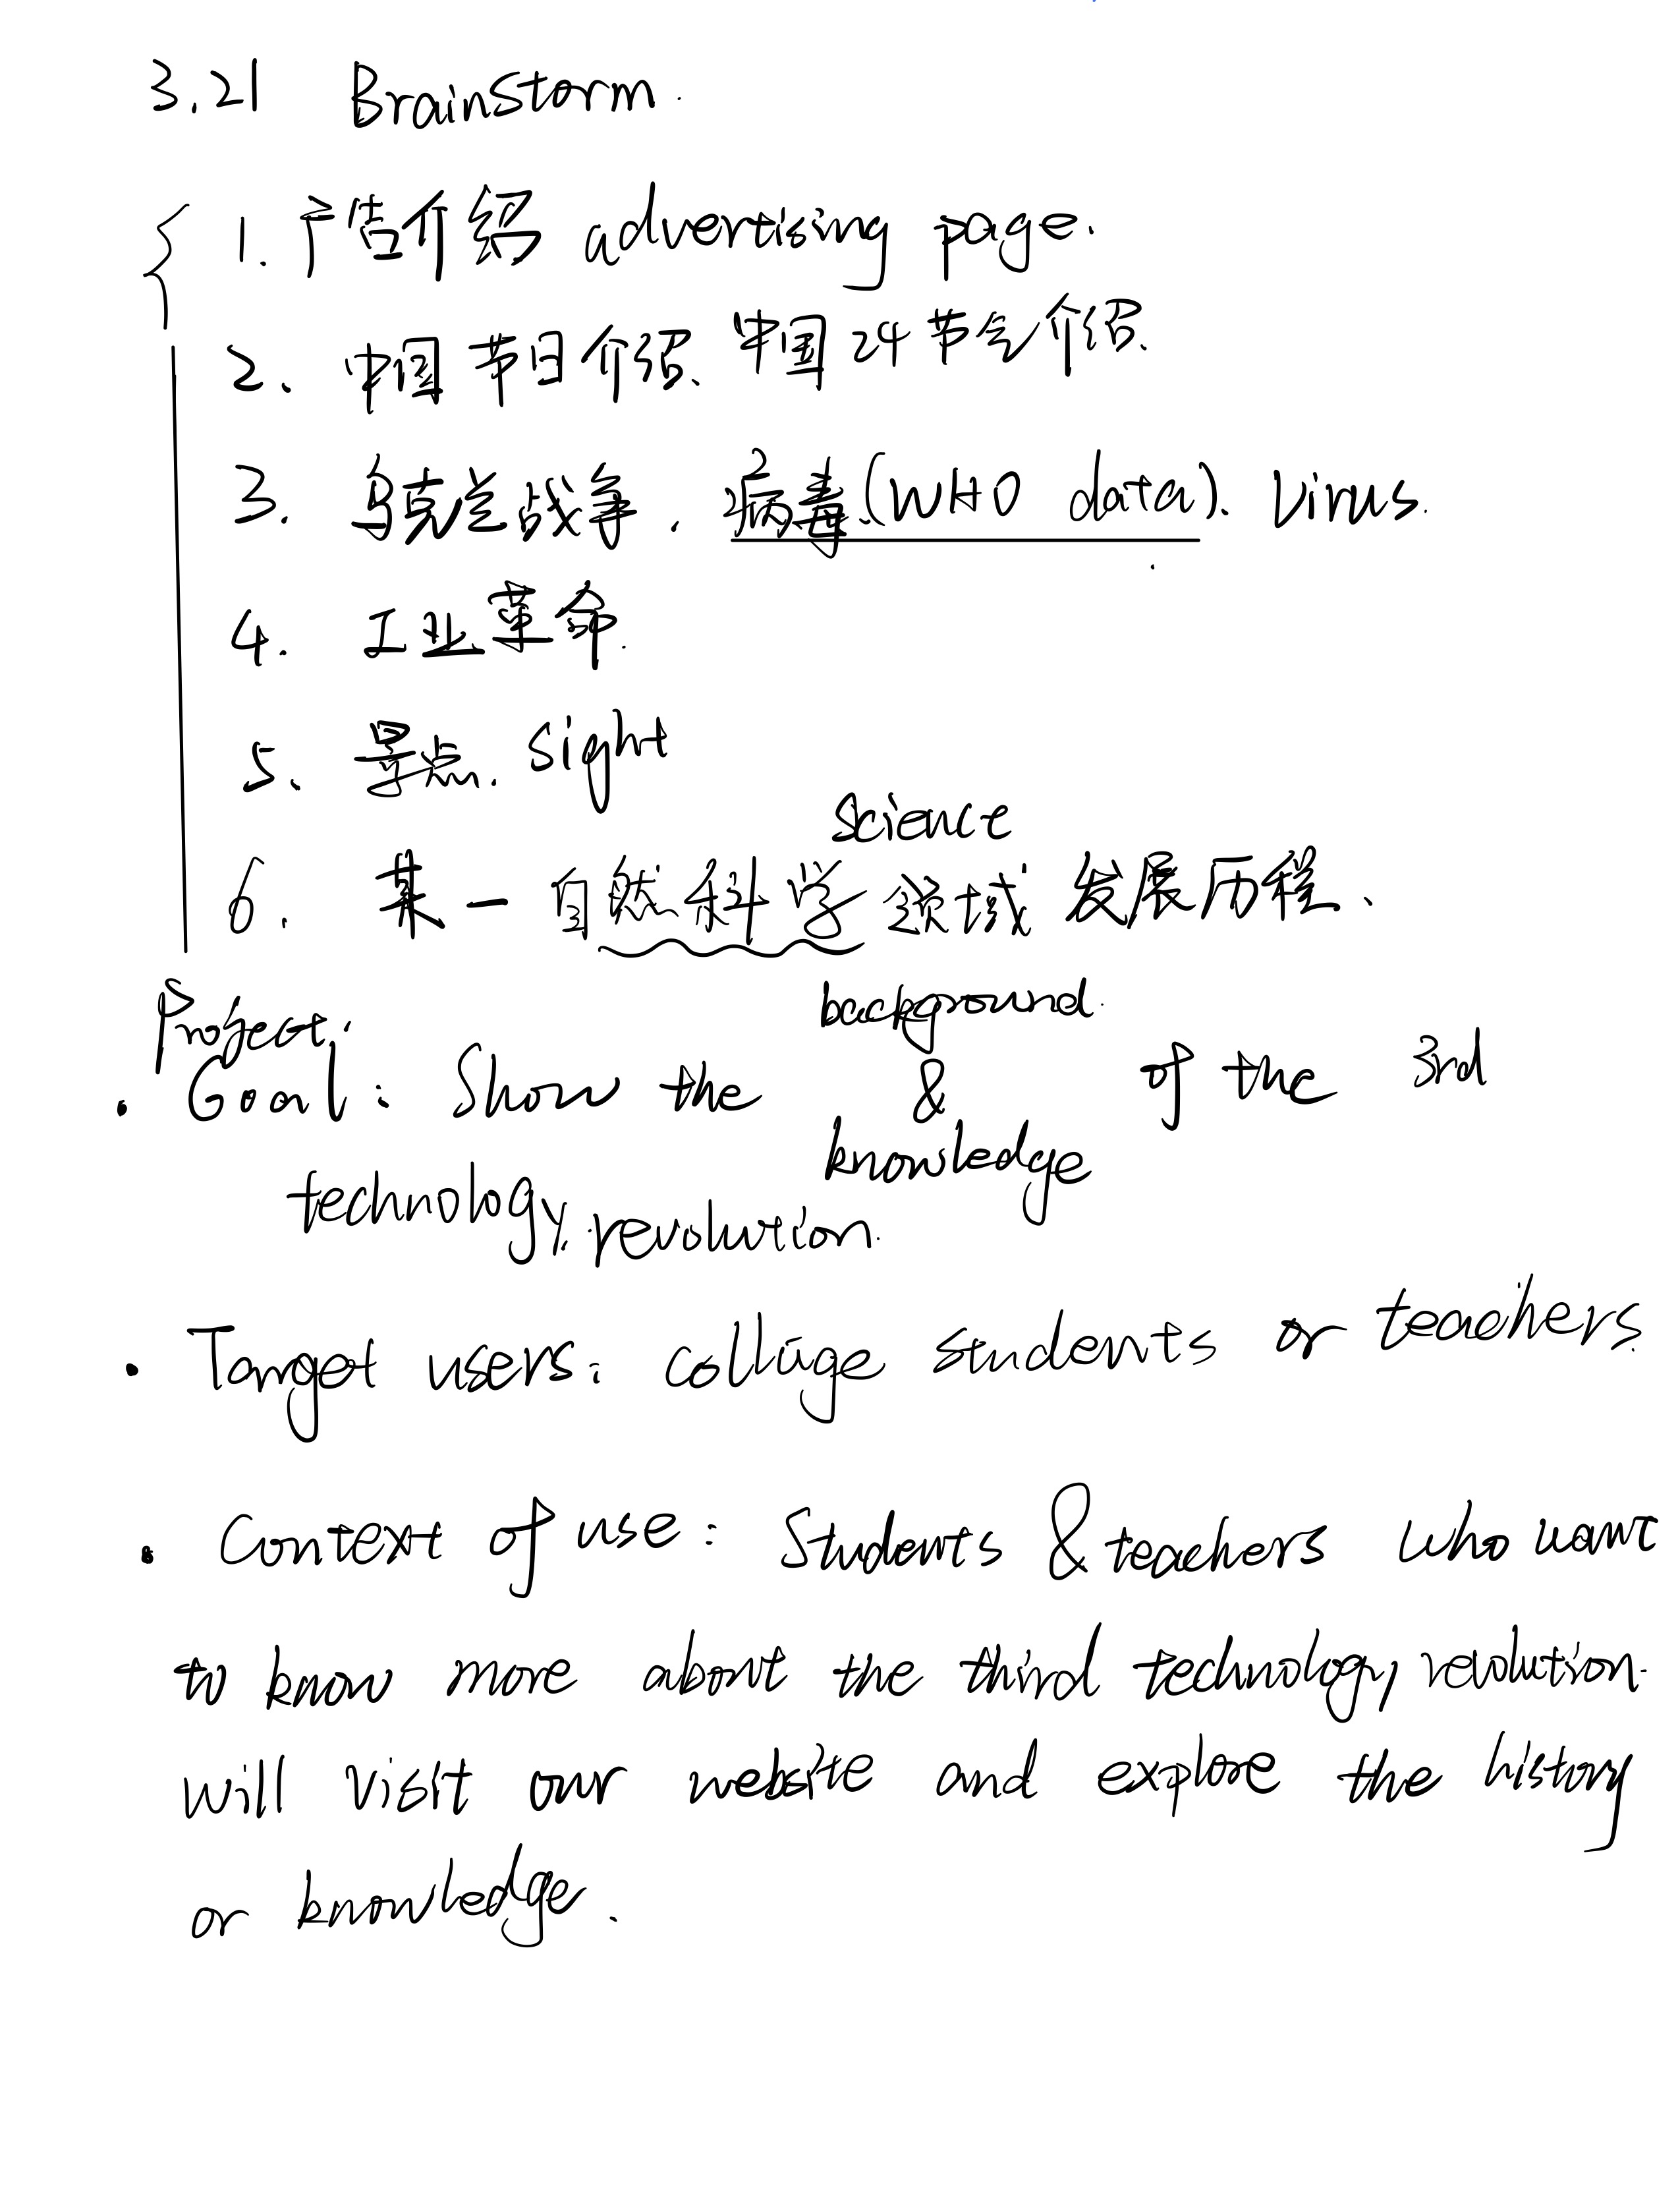 3.21 Brainstorm.
1. 广告介绍 advertising page.
2、中国节日介绍、中国24节气介绍、
3. 乌克兰战争. 病毒(WHO data). Virus.
4. 工业革命.
5、景点. sight
science
6. 某一自然科学领域发展历程、
Project:
background.
· Goal: Show the & of the 3rd
knowledge
technology revolution.
· Target users: colluge students or teachers.
· Context of use: Students & teachers who want
to know more about the third technology revolution.
will visit our website and explore the history
or knowledge.